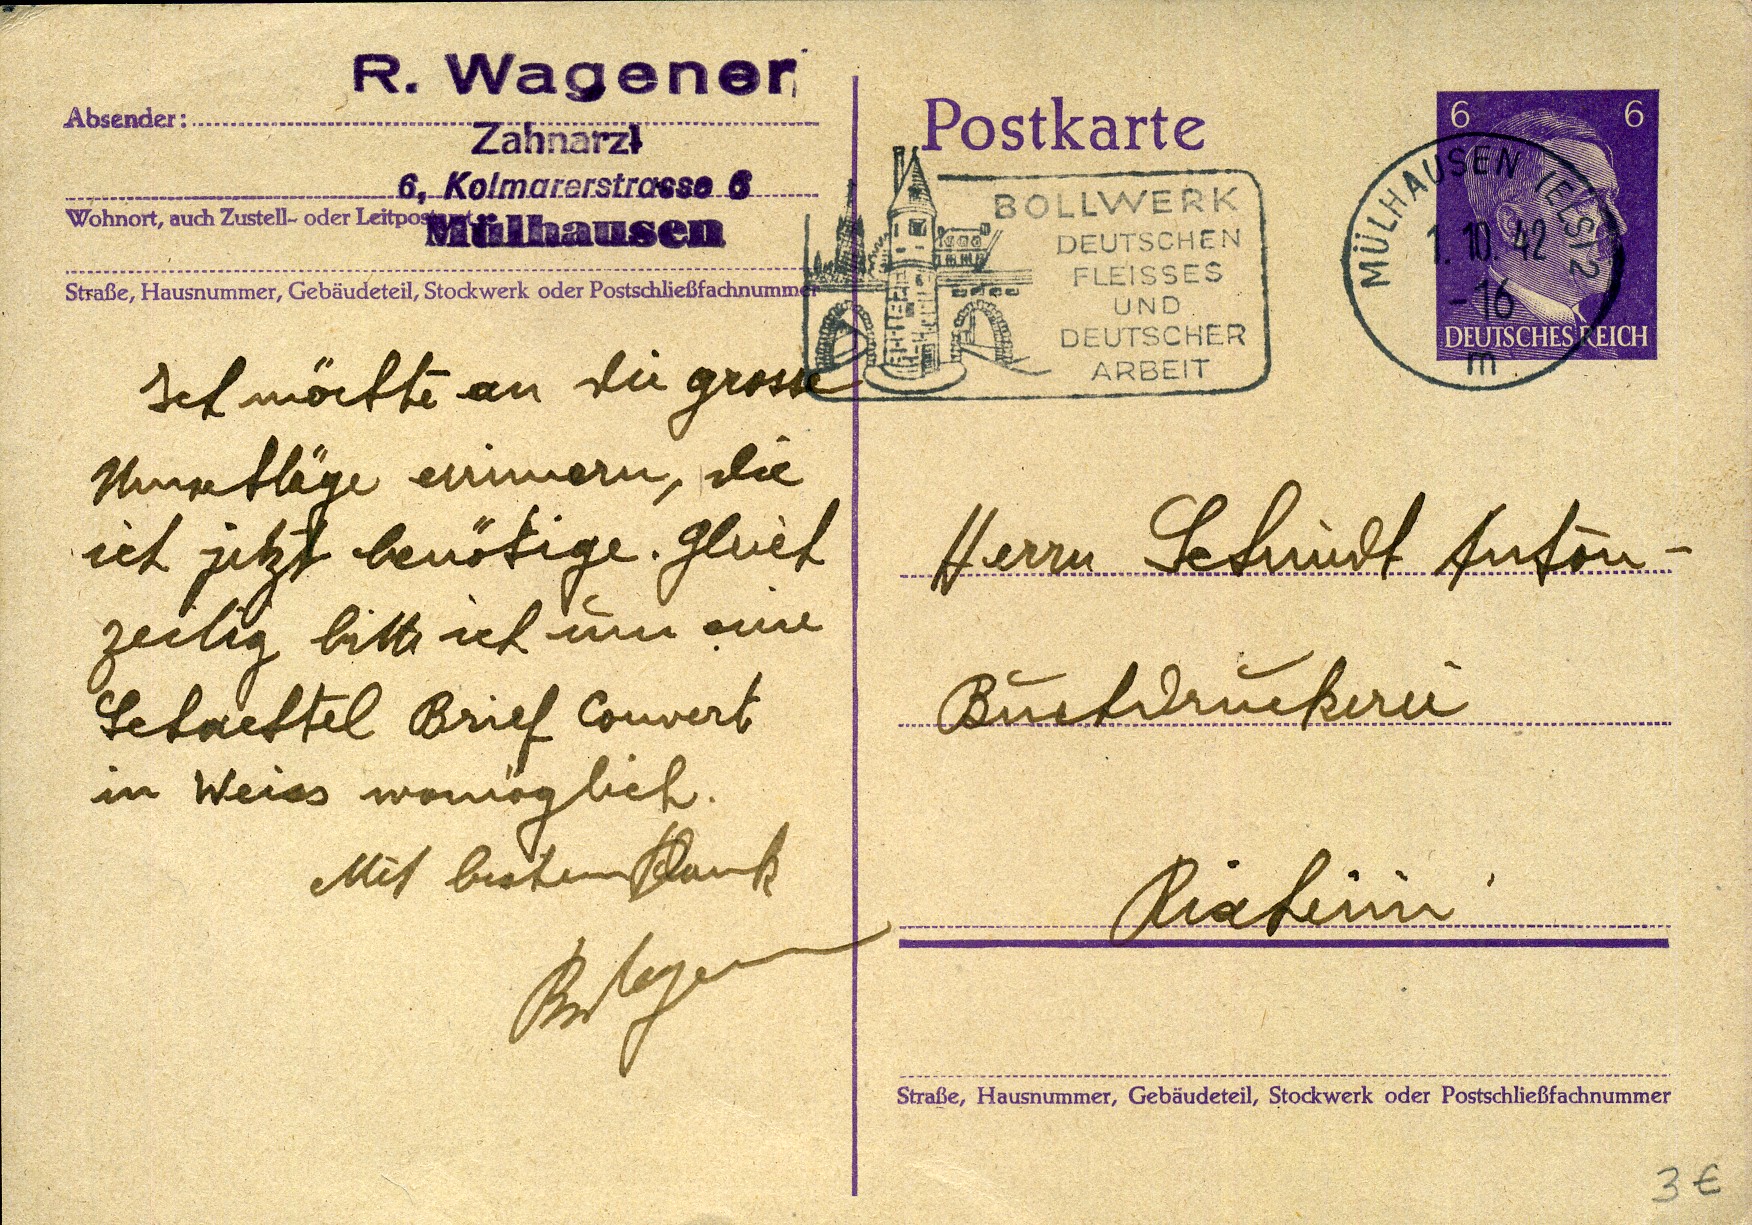 R. Wagener
Absender:
Zahnarzt
6, Kolmarerstrasse 6
Wohnort, auch Zustell- oder Leitpostamt
Mülhausen
Straße, Hausnummer, Gebäudeteil, Stockwerk oder Postschließfachnummer
Ich möchte an die grosse
Umschläge erinnern, die
ich jetzt benötige. Gleich
zeitig bitte ich um eine
Schachtel Brief Couvert
in Weiss womöglich.
Mit bestem Dank
Wagener
Postkarte
BOLLWERK
DEUTSCHEN
FLEISSES
UND
DEUTSCHER
ARBEIT
6 6
MÜLHAUSEN (ELS) 2
1.10.42
-16
m
DEUTSCHES REICH
Herrn Schmidt Anton-
Buchdruckerei
Rixheim
Straße, Hausnummer, Gebäudeteil, Stockwerk oder Postschließfachnummer
3 €